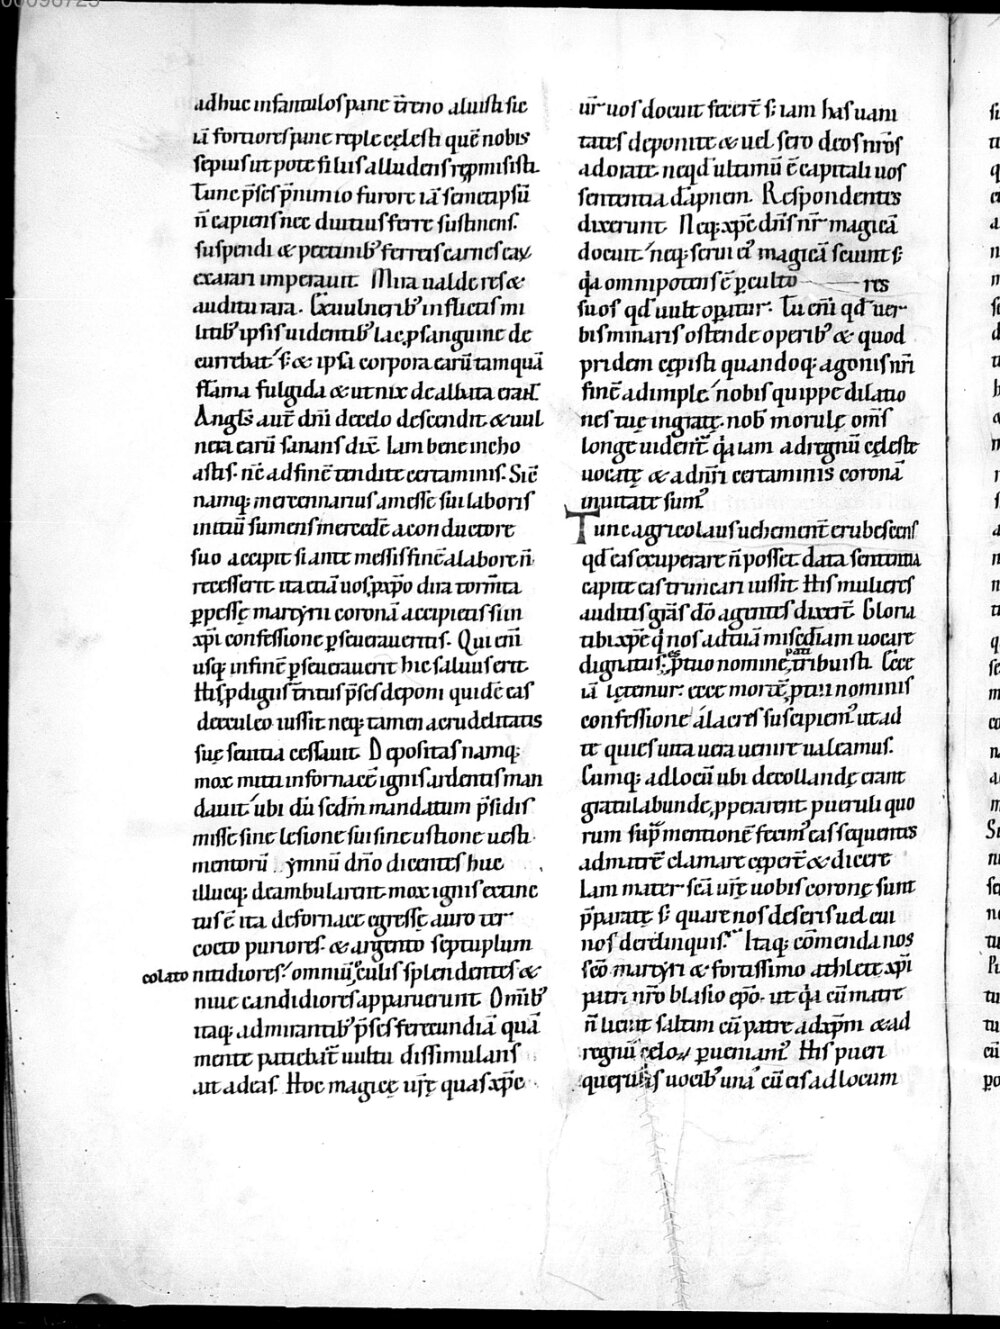 adhuc infantulos pane t̄reno aluisti sic
iā fortiores pane reple cęlesti quē nobis
sepius ut pote filiis alludens rep̄misisti.
Tunc p̄ses p̄ nimio furore iā semetapsū
n̄ capiens nec diutius ferre sustinens.
suspendi & pectinib; ferreis carnes eaꝝ
exarari imperauit. Mira ualde res &
auditu rara. Ex uulnerib; inflictis mi
litib; ipsis uidentib; lac p sanguine de
currebat; s; & ipsa corpora carū tamquā
flāma fulgida & ut nix dealbata erāt.
Angl̄s aut̄ dn̄i de celo descendit & uul
nera earū sanans dix̄. Iam bene incho
astis. nc̄ ad finē tendite certaminis. Sic̄
namq; mercennarius a messe sui laboris
initiū sumens mercedē a conductore
suo accipit si ante messis finē a labore n̄
recesserit. ita etiā uos p xp̄o dira torm̄ta
ꝑpessę martyrii coronā accipietis si in
xp̄i confessione ꝑseueraueritis. Qui eni
usq; in finē ꝑseuerauerit hic saluus erit.
His p digius t̄ritus p̄ses deponi quidē eas
de eculeo iussit neq; tamen a crudelitatis
suę seuitia cessauit. Depositas namq;
mox mitti in fornacē ignis ardentis man
dauit. ubi dū scdm̄ mandatum p̄sidis
misse sine lesione siu sine ustione uesti
mentorū ymnū dn̄o dicentes huc
illucq; deambularent. mox ignis extinc
tus ē. ita de fornace egressę auro ter
cocto puriores. & argento septuplum
colato nitidiores. omniū oculis splendentes &
niue candidiores apparuerunt. Omīb;
itaq; admirantib; p̄ses fercundiā quā
mente patiebat̄ uultu dissimulans
ait ad eas. Hoc magicę ur̄ę quas xp̄c
ur̄ uos docuit fecer̄t s; iam has uani
tates deponite & uel sero deos nr̄os
adorate. ne qd' ultimū ē capitali uos
sententia dāpnem. Respondentes
dixerunt. Neq; xp̄c dn̄s nr̄ magicā
docuit neq; serui ei' magicā sciunt s;
q̄a omnipotens ē ꝑ culto res
suos qd' uult operatur. Tu eni qd' uer
bis minaris ostende operib; & quod
pridem cepisti quandoq; agonis nr̄i
finē adimple. nobis quippe dilatio
nes tuę ingratę. nob' morulę om̄s
longe uident̄. q̄a iam ad regnū cęleste
uocatę & ad nr̄i certaminis coronā
inuitate sum'
Tunc agricolaus uehement̄ erubescens
qd' eas exuperare n̄ posset data sententia
capite eas truncari iussit. His mulieres
auditis grās dō agentes dixer̄t. Gloria
tibi xp̄e q' nos ad tuā misc̄diam uocare
dignatus es; p̄ tuo nomine pati tribuisti. Ecce
iā lętemur. ecce mortē p tui nominis
confessione alacres suscipiem' ut ad
te quies uita uera uenire ualeamus.
Cumq; ad locū ubi decollandę erant
gratulabundę pperarent. pueruli quo
rum sup̄ mentionē fecim' eas sequentes
ad matrē clamare ceper̄t & dicere
Iam mater scā ur̄ę uobis coronę sunt
p̄paratę s; quare nos deseris uel cui
nos derelinquis. Itaq; cōmenda nos
scō martyri & fortissimo athletę xp̄i
patri nr̄o blasio epo. ut q̄a cū matre
n̄ licuit saltim cū patre ad xpm̄ & ad
regnū cęlo⁊ ꝑueniam'. His pueri
querulis uocib; una cū eis ad locum